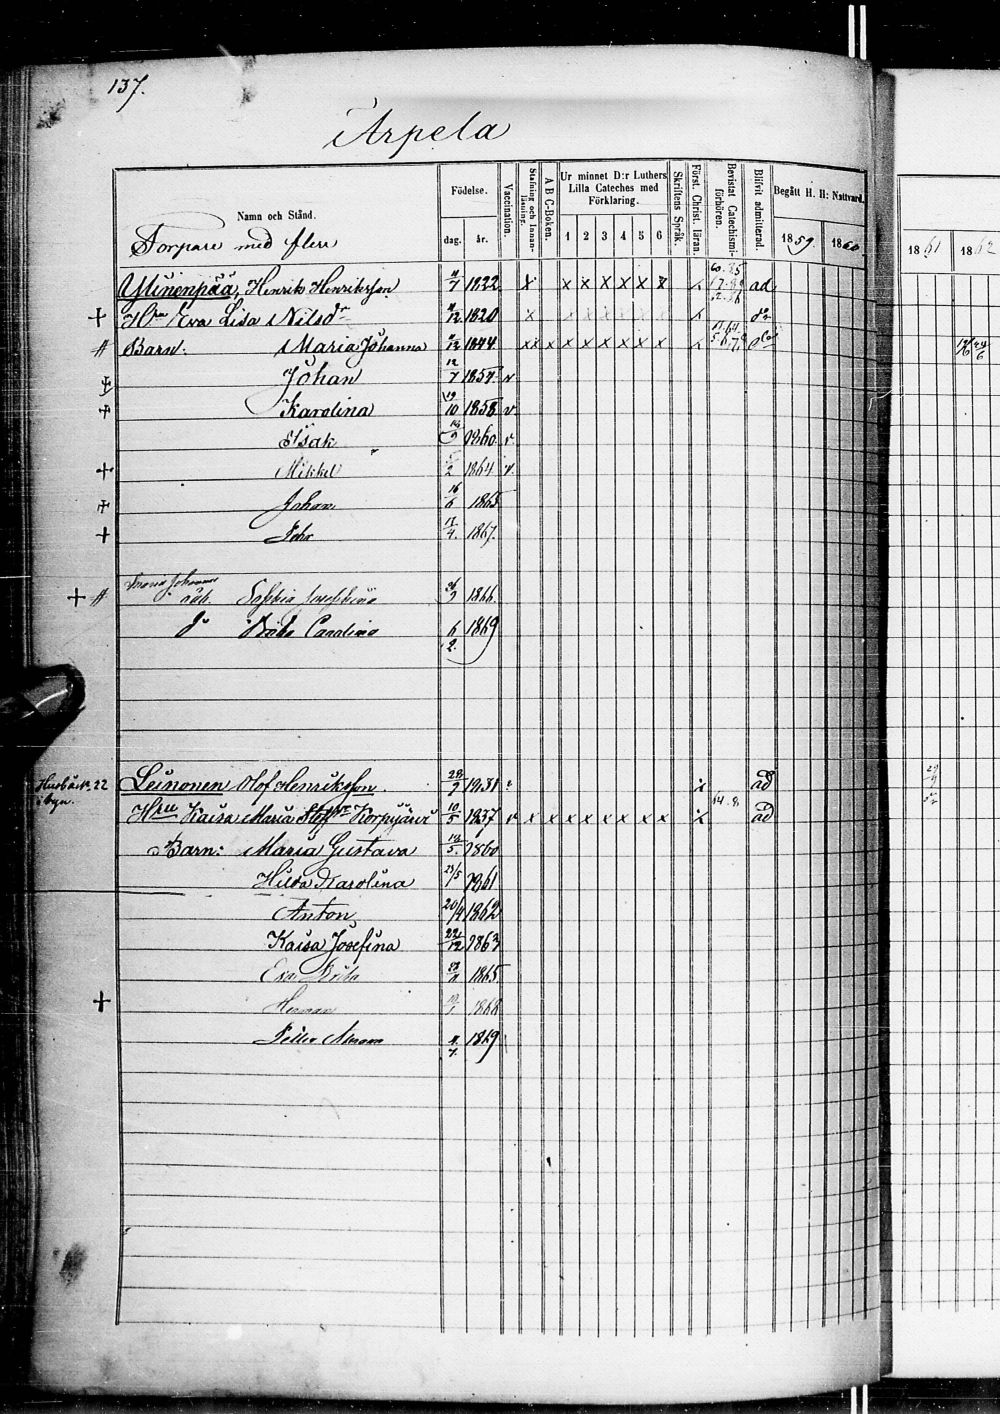 137.
Arpela
Namn och Stånd.
Torpare med flere
Födelse.
dag. år.
Vaccination.
Stafning och Innanläsning.
A B C-Boken.
Ur minnet D:r Luthers
Lilla Cateches med
Förklaring.
1 2 3 4 5 6
Skriftens Språk.
Först. Christ. läran.
Bevistat Catechismiförhören.
Blifvit admitterad.
Begått H. H: Nattvard.
1859. 1860 1861 1862
Ylinenpää, Henrik Henriksson 1822 x x x x x x x x ad
+ Hru Eva Lisa Nilsdr 1820
# Barn: Maria Johanna 1844 x x x x x x x x x x
Johan 12/7 1857 v
Karolina 19/10 1858 v
Isak 1860 v
+ Mikkel 1864 v
Johan 16/6 1865
+ Pehr 1867.
+ # Maria Johannas
oäb. Sophia Josephina 1866.
do Brita Carolina 6/2. 1869
Husbäck. 22
i byn.
Leinonen Olof Henriksson 1831 x ad
Hru Kaisa Maria Korpijärvi 10/5 1837 v x x x x x x x x x ad
Barn: Maria Gustava 1860
Hilda Karolina 1861
Anton 20/4 1862
Kaisa Josefina 22/12 1863
Eva Brita 1865
+ Herman 1868
Peller Abram 1869